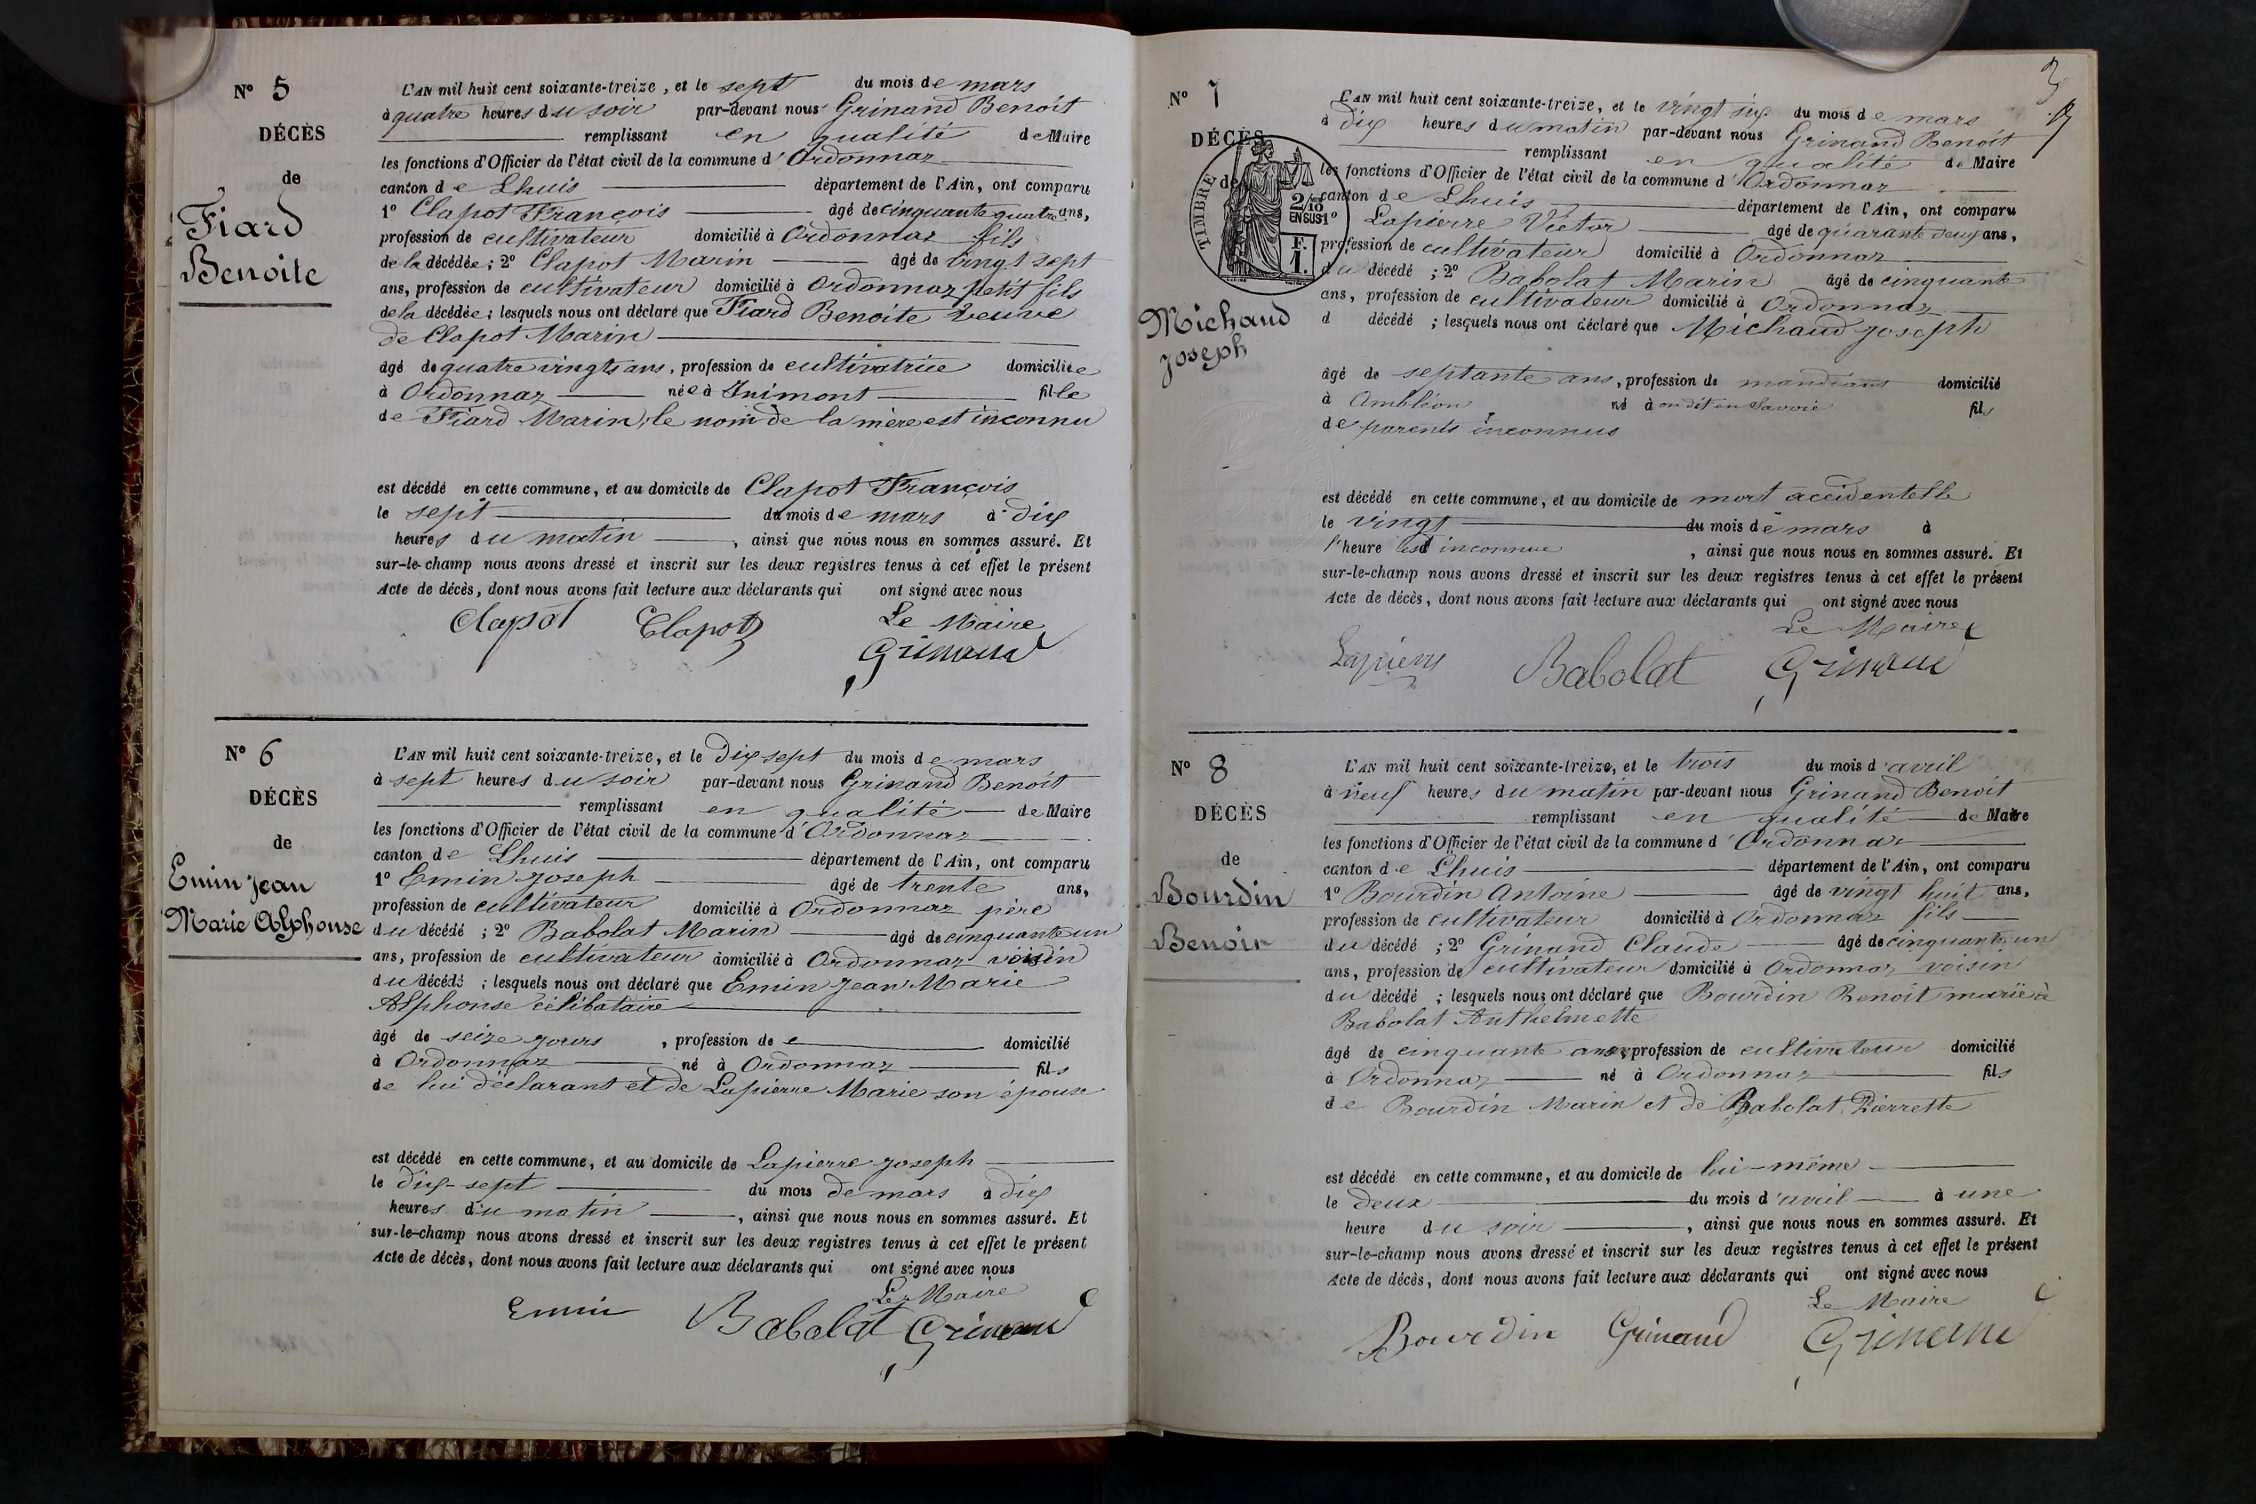 N° 5
DÉCÈS
de
Fiard
Benoite
L'AN mil huit cent soixante-treize, et le sept du mois de mars
à quatre heures du soir par-devant nous Grinand Benoît
remplissant en qualité de Maire
les fonctions d'Officier de l'état civil de la commune d'Ordonnaz
canton de Lhuis département de l'Ain, ont comparu
1° Clapot François âgé de cinquante quatre ans,
profession de cultivateur domicilié à Ordonnaz fils
de la décédée; 2° Clapot Marin âgé de vingt sept
ans, profession de cultivateur domicilié à Ordonnaz petit fils
de la décédée; lesquels nous ont déclaré que Fiard Benoite veuve
de Clapot Marin
âgé de quatre vingts ans, profession de cultivatrice domiciliée
à Ordonnaz née à Inimont fille
de Fiard Marin, le nom de la mère est inconnu
est décédé en cette commune, et au domicile de Clapot François
le sept du mois de mars à dix
heures du matin, ainsi que nous nous en sommes assuré. Et
sur-le-champ nous avons dressé et inscrit sur les deux registres tenus à cet effet le présent
Acte de décès, dont nous avons fait lecture aux déclarants qui ont signé avec nous
Le Maire
Clapot Clapot Grinand
N° 6
DÉCÈS
de
Emin Jean
Marie Alphonse
L'AN mil huit cent soixante-treize, et le Dix sept du mois de mars
à sept heures du soir par-devant nous Grinand Benoît
remplissant en qualité de Maire
les fonctions d'Officier de l'état civil de la commune d'Ordonnaz
canton de Lhuis département de l'Ain, ont comparu
1° Emin Joseph âgé de trente ans,
profession de cultivateur domicilié à Ordonnaz père
du décédé; 2° Babolat Marin âgé de cinquante un
ans, profession de cultivateur domicilié à Ordonnaz voisin
du décédé; lesquels nous ont déclaré que Emin Jean Marie
Alphonse célibataire
âgé de seize jours, profession de domicilié
à Ordonnaz né à Ordonnaz fils
de lui déclarant et de Lapierre Marie son épouse
est décédé en cette commune, et au domicile de Lapierre Joseph
le dix-sept du mois de mars à dix
heures du matin, ainsi que nous nous en sommes assuré. Et
sur-le-champ nous avons dressé et inscrit sur les deux registres tenus à cet effet le présent
Acte de décès, dont nous avons fait lecture aux déclarants qui ont signé avec nous
Le Maire
Emin Babolat Grinand
3
N° 7
DÉCÈS
de
TIMBRE
2/10
EN SUS
F.
1.
Michaud
Joseph
L'AN mil huit cent soixante-treize, et le vingt six du mois de mars
à dix heures du matin par-devant nous Grinand Benoît
remplissant en qualité de Maire
les fonctions d'Officier de l'état civil de la commune d'Ordonnaz
canton de Lhuis département de l'Ain, ont comparu
1° Lapierre Victor âgé de quarante deux ans,
profession de cultivateur domicilié à Ordonnaz
du décédé; 2° Babolat Marin âgé de cinquante
ans, profession de cultivateur domicilié à Ordonnaz
d décédé; lesquels nous ont déclaré que Michaud Joseph
âgé de septante ans, profession de mendiant domicilié
à Ambléon né à on dit en Savoie fils
de parents inconnus
est décédé en cette commune, et au domicile de mort accidentelle
le vingt du mois de mars à
l'heure est inconnue, ainsi que nous nous en sommes assuré. Et
sur-le-champ nous avons dressé et inscrit sur les deux registres tenus à cet effet le présent
Acte de décès, dont nous avons fait lecture aux déclarants qui ont signé avec nous
Le Maire
Lapierre Babolat Grinand
N° 8
DÉCÈS
de
Bourdin
Benoir
L'AN mil huit cent soixante-treize, et le trois du mois d'avril
à neuf heures du matin par-devant nous Grinand Benoît
remplissant en qualité de Maire
les fonctions d'Officier de l'état civil de la commune d'Ordonnaz
canton de Lhuis département de l'Ain, ont comparu
1° Bourdin Antoine âgé de vingt huit ans,
profession de cultivateur domicilié à Ordonnaz fils
du décédé; 2° Grinand Claude âgé de cinquante un
ans, profession de cultivateur domicilié à Ordonnaz voisin
du décédé; lesquels nous ont déclaré que Bourdin Benoît marié à
Babolat Anthelmette
âgé de cinquante ans, profession de cultivateur domicilié
à Ordonnaz né à Ordonnaz fils
de Bourdin Marin et de Babolat Pierrette
est décédé en cette commune, et au domicile de lui-même
le deux du mois d'avril à une
heure du soir, ainsi que nous nous en sommes assuré. Et
sur-le-champ nous avons dressé et inscrit sur les deux registres tenus à cet effet le présent
Acte de décès, dont nous avons fait lecture aux déclarants qui ont signé avec nous
Le Maire
Bourdin Grinand Grinand